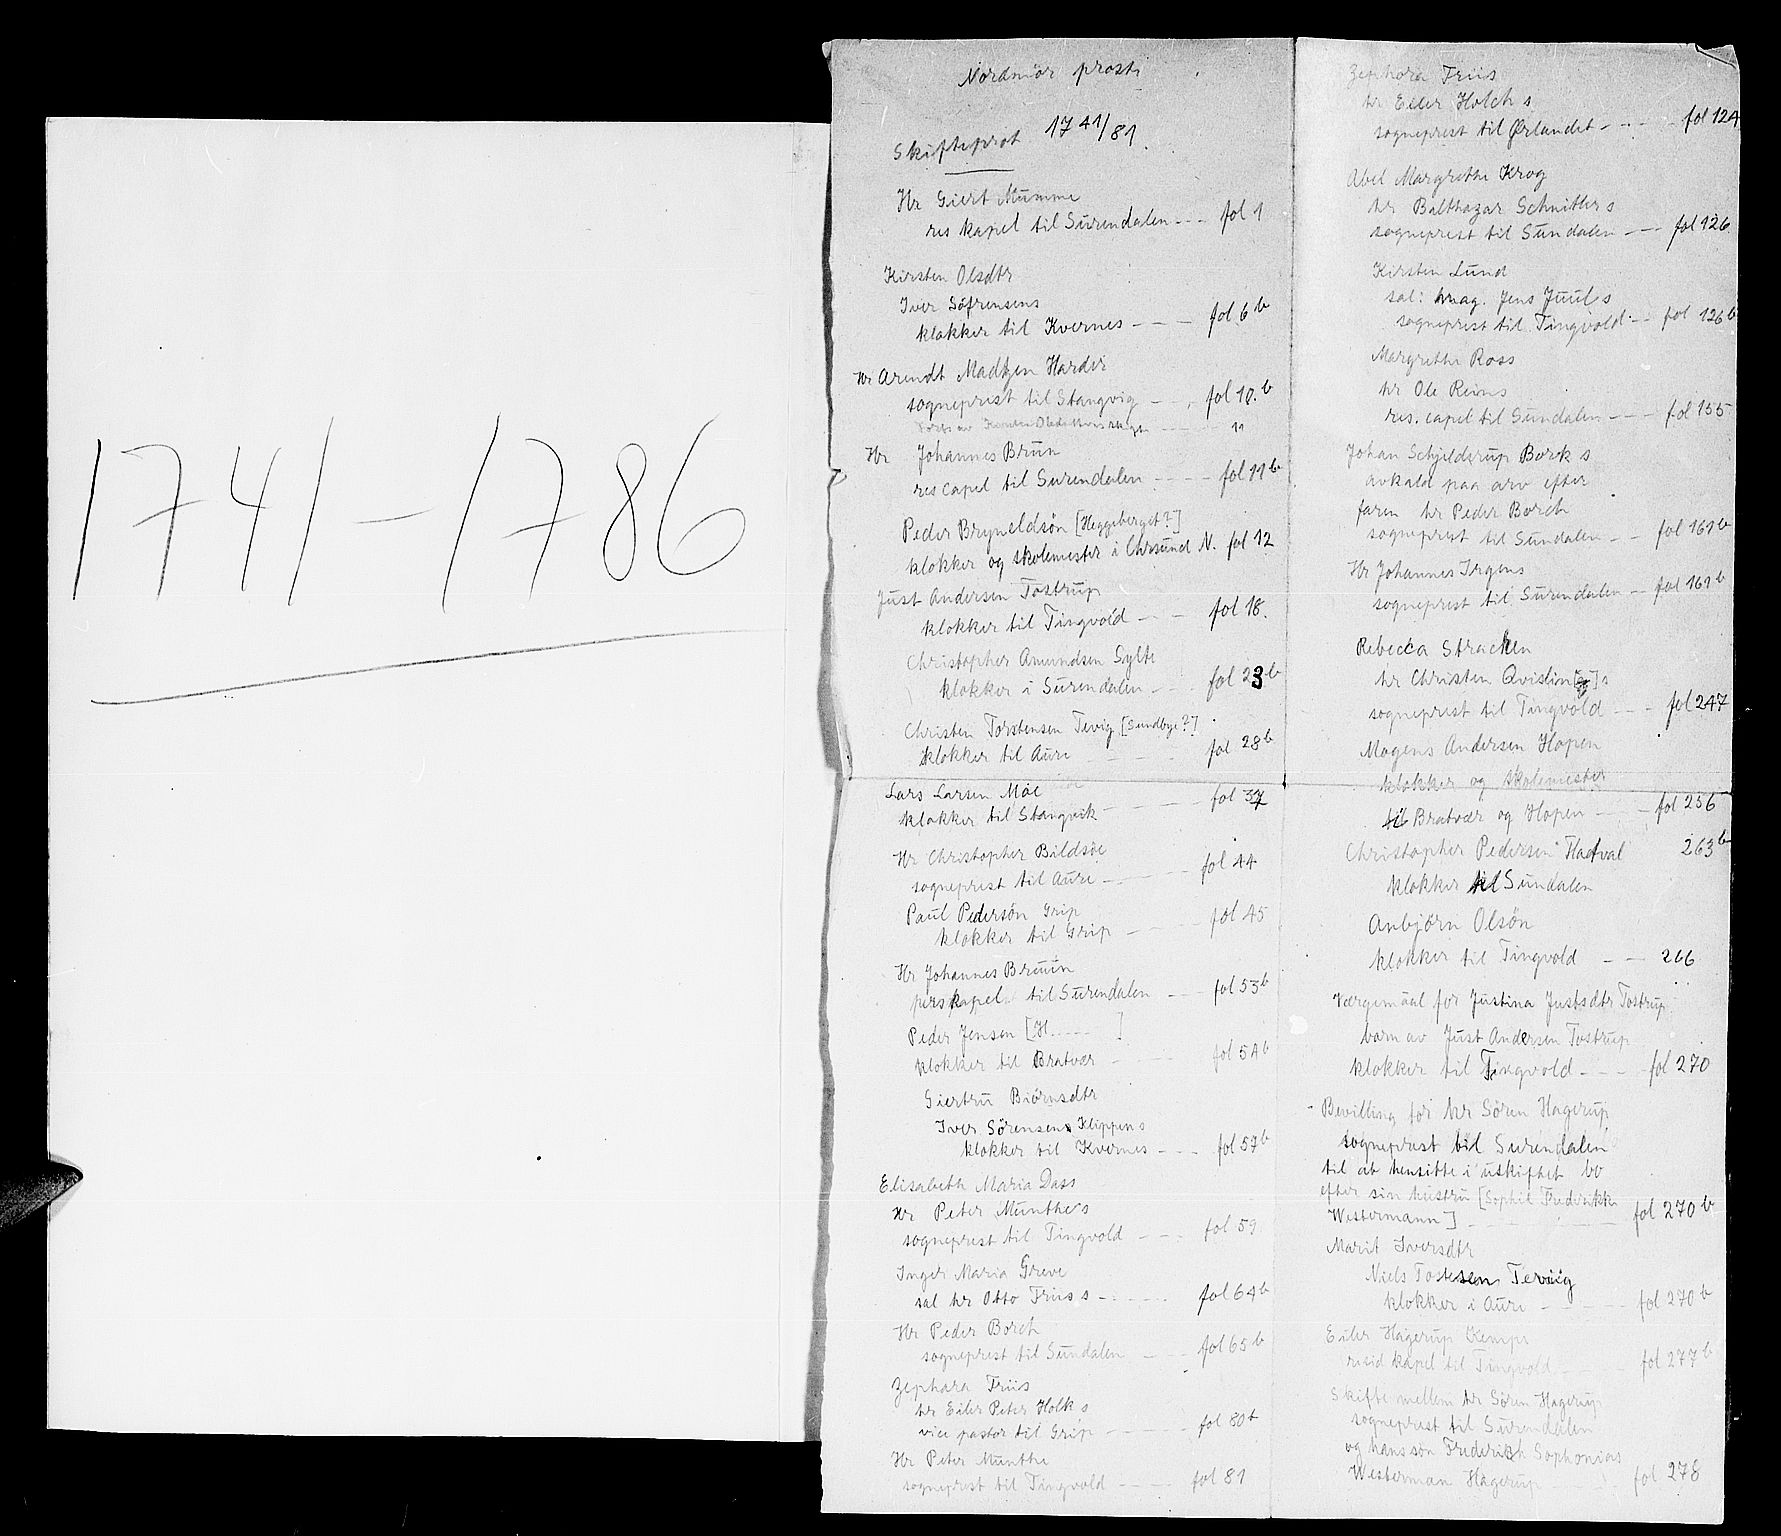 1741-1786
Nordmör prosti
Skifteprot 1741/81.
Hr Giert Mumme
res kapel til Surendalen --- fol 1
Kirsten Olsdtr
Iver Söfrensens
klokker til Kvernes --- fol 6b
Hr Arendt Madtzen Harder
sogneprest til Stangvig --- fol 10.b
11
Hr Johannes Brun
res capel til Surendalen ---- fol 11b
Peder Bryneldsön [Heggeberget?]
klokker og skolemester i Chrsund N. fol 12
Just Andersen Tostrup
klokker til Tingvold --- fol 18.
Christopher Amundsen Sylte
klokker i Surendalen --- fol 23b
Christen Torstensen Tevig [Sundbye?]
klokker til Aure ---- fol 28b
Lars Larsen Möe
klokker til Stangvik ---- fol 37
Hr Christopher Bildsöe
sogneprest til Aure ---- fol 44
Paul Pedersön Grip
klokker til Grip --- fol 45
Hr Johannes Bruun
perskapel til Surendalen --- fol 53b
Peder Jensen [H..... ]
klokker til Bratvær ---- fol 54b
Giertru Biörnsdtr
Iver Sörensens Klippens
klokker til Kvernes --- fol 57b
Elisabeth Maria Dass
Hr Peter Munthes
sogneprest til Tingvold --- fol 59.
Inger Maria Greve
sal hr Otto Friis s ----- fol 64b
Hr Peder Borch
sogneprest til Sundalen --- fol 65b
Zephora Friis
hr Eiler Peter Holk s
vice pastor til Grip ----- fol 80b
Hr Peter Munthe
sogneprest til Tingvold ---- fol 81
Zephora Friis
hr Eiler Holch s
sogneprest til Ørlandet ---- fol 124
Abel Margrethe Krog
hr Balthazar Schnitler s
sogneprest til Sundalen --- fol 126
Kirsten Lund
sal: mag. Jens Juul s
sogneprest til Tingvold --- fol 126b
Margrethe Ross
hr Ole Reins
res. capel til Sundalen --- fol 155
Johan Schjelderup Bork s
avkald paa arv efter
faren hr Peder Borch
sogneprest til Sundalen -- fol 161b
Hr Johannes Irgens
sogneprest til Surendalen -- fol 161b
Rebecca Strachen
hr Christen Qvislin[g]s
sogneprest til Tingvold --- fol 247
Mogens Andersen Hopen
klokker og skolemester
til Bratvær og Hopen --- fol 256
Christopher Pedersen Hafval 263b
klokker til Sundalen
Anbjörn Olsön
klokker til Tingvold -- 266
Værgemaal for Justina Justsdtr Tostrup
barn av Just Andersen Tostrup
klokker til Tingvold ---- fol 270
Bevilling for hr Sören Hagerup
sogneprest til Surendalen
til at hensitte i uskiftet bo
efter sin hustru [Sophie Frederikke
Westermann] ----- fol 270b
Marit Iversdtr
Niels Tostesen Teviig
klokker i Aure ----- fol 270b
Eiler Hagerup Kempe
resid kapel til Tingvold ---- fol 277b
Skifte mellem hr Sören Hagerup
sogneprest til Surendalen
og hans sön Frederich Sophonias
Westerman Hagerup ----- fol 278